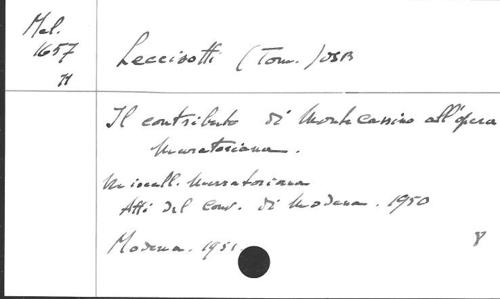 Mel.
1657
11
Leccisotti (Tom.) OSB
Il contributo di Montecassino all'opera
Muratoriana.
Miscell. Muratoriana
Atti del Conv. di Modena. 1950
Modena. 1951.
8